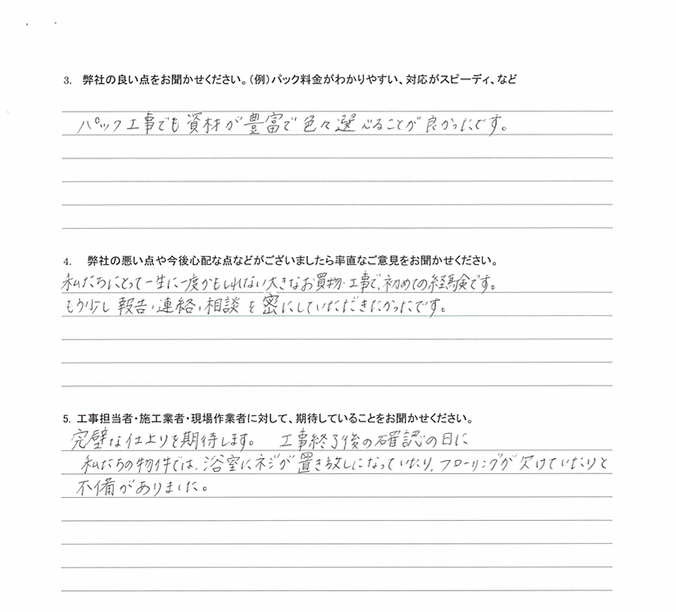 3. 弊社の良い点をお聞かせください。（例）パック料金がわかりやすい、対応がスピーディ、など
パック工事でも資材が豊富で色々選べることが良かったです。
4. 弊社の悪い点や今後心配な点などがございましたら率直なご意見をお聞かせください。
私たちにとって一生に一度かもしれない大きなお買物・工事で、初めての経験です。
もう少し報告、連絡、相談を密にしていただきたかったです。
5. 工事担当者・施工業者・現場作業者に対して、期待していることをお聞かせください。
完璧な仕上りを期待します。 工事終了後の確認の日に
私たちの物件では、浴室にネジが置き放しになっていたり、フローリングが欠けていたりと
不備がありました。